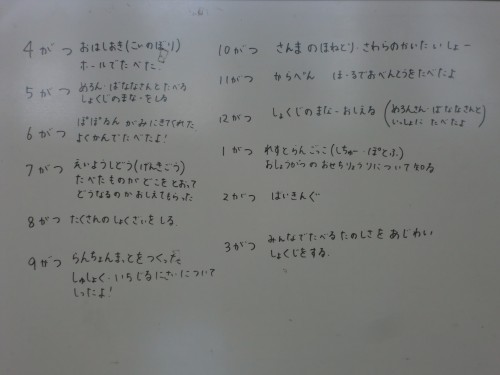 4がつ おはしあき(こいのぼり)
ホールでたべた
5がつ めろん・ばななさんとたべる
しょくじのまなーをしる
6がつ ぱぱるん がみにきてくれた
よくかんでたべたよ!
7がつ えいようしどう(げんきごう)
たべたものがどこをとおって
どうなるのかおしえてもらった
8がつ たくさんのしょくざいをしる
9がつ らんちょんまっとをつくったよ
しゅしょく・いちじるにさいについて
しったよ!
10がつ さんまのほねとり・さわらのかいたいしょー
11がつ からべん ほーるでおべんとうをたべたよ
12がつ しょくじのまなーおしえる (めろんさん・ばななさんと
いっしょに たべたよ)
1がつ れすとらんごっこ(しちゅー・ぽとふ)
おしょうがつのおせちりょうりについて知る
2がつ ばいきんぐ
3がつ みんなでたべるたのしさをあじわい
しょくじをする.